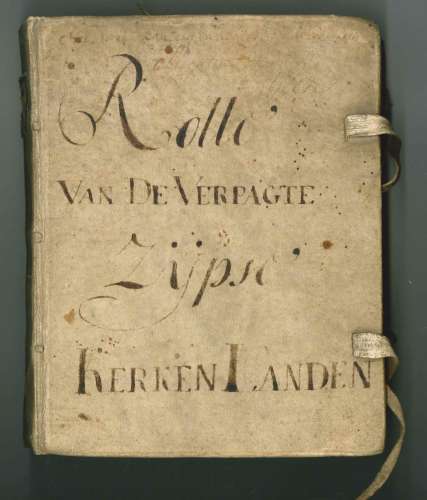 Rolle
VAN DE VERPAGTE
Zÿpse
KERKEN LANDEN